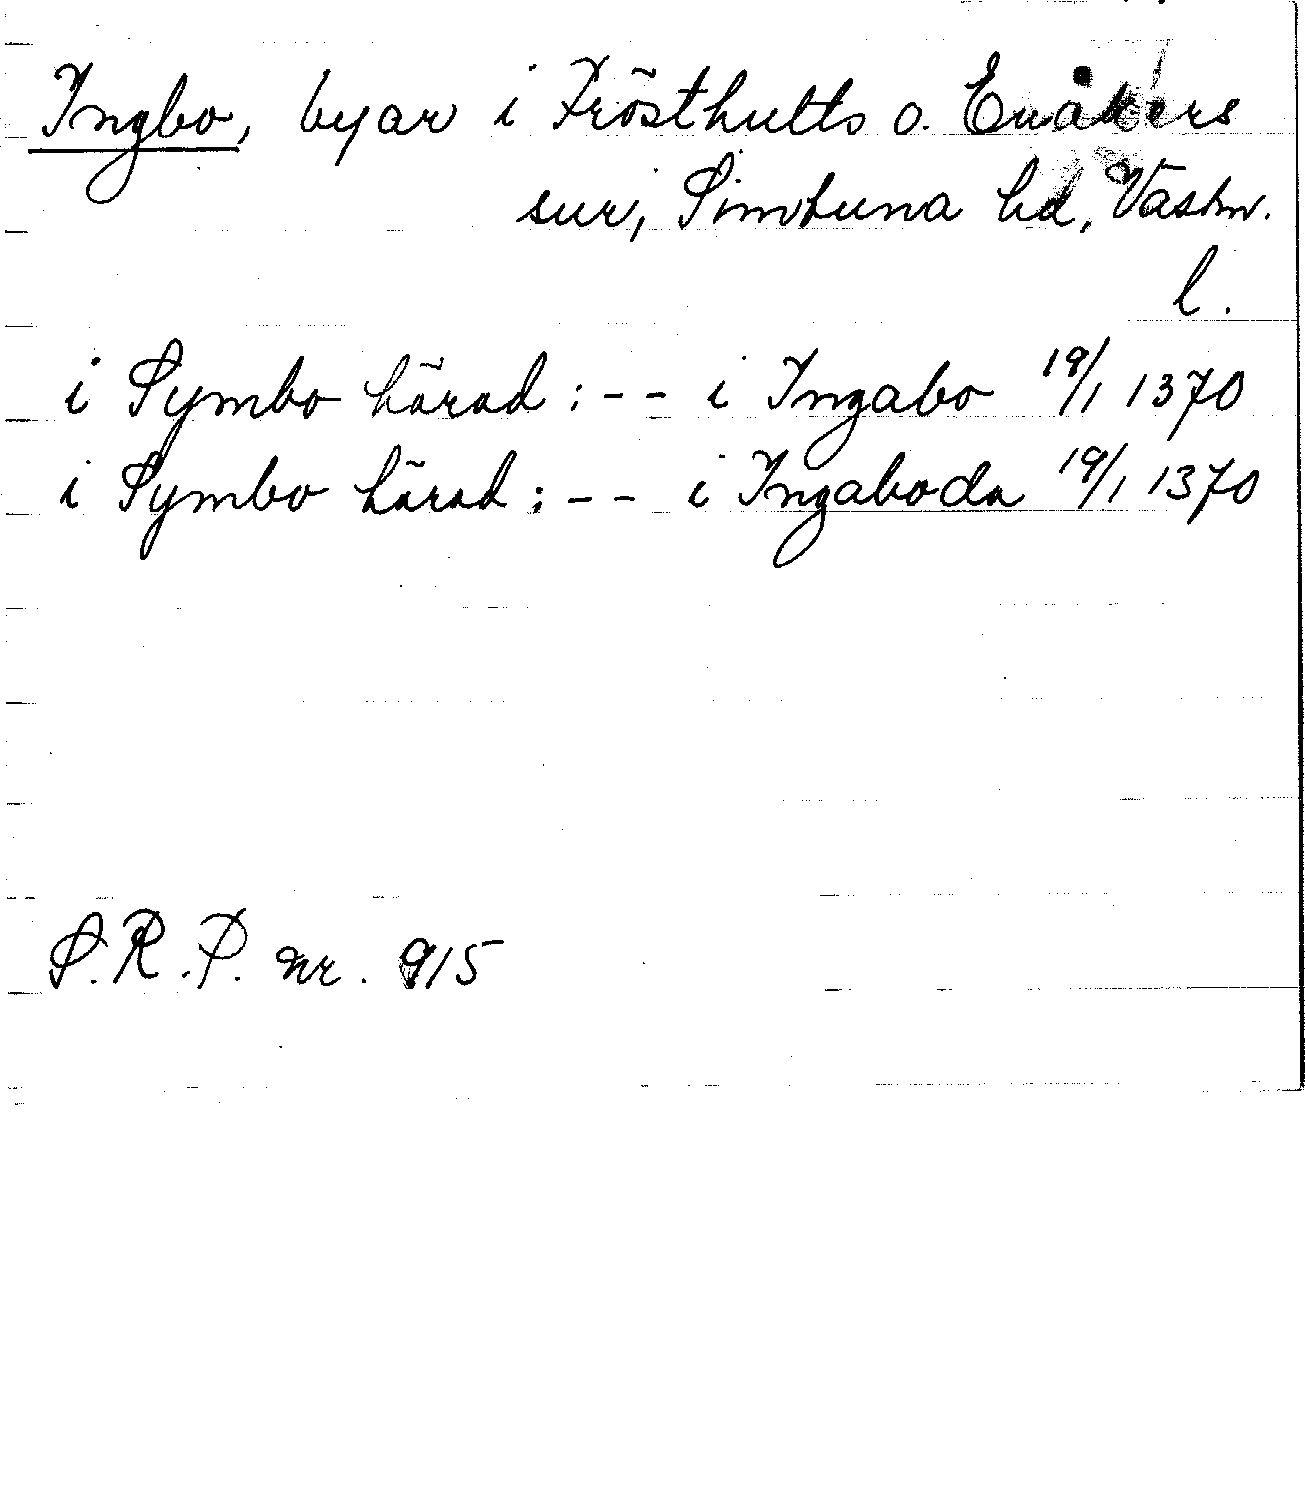 Ingbo, byar i Frösthults o. Enåkers
snr, Simtuna hd, Västm.
l.
i Symbo härad : - - i Ingabo 19/1 1370
i Symbo härad : - - i Ingaboda 19/1 1370
S.R.P. nr. 915